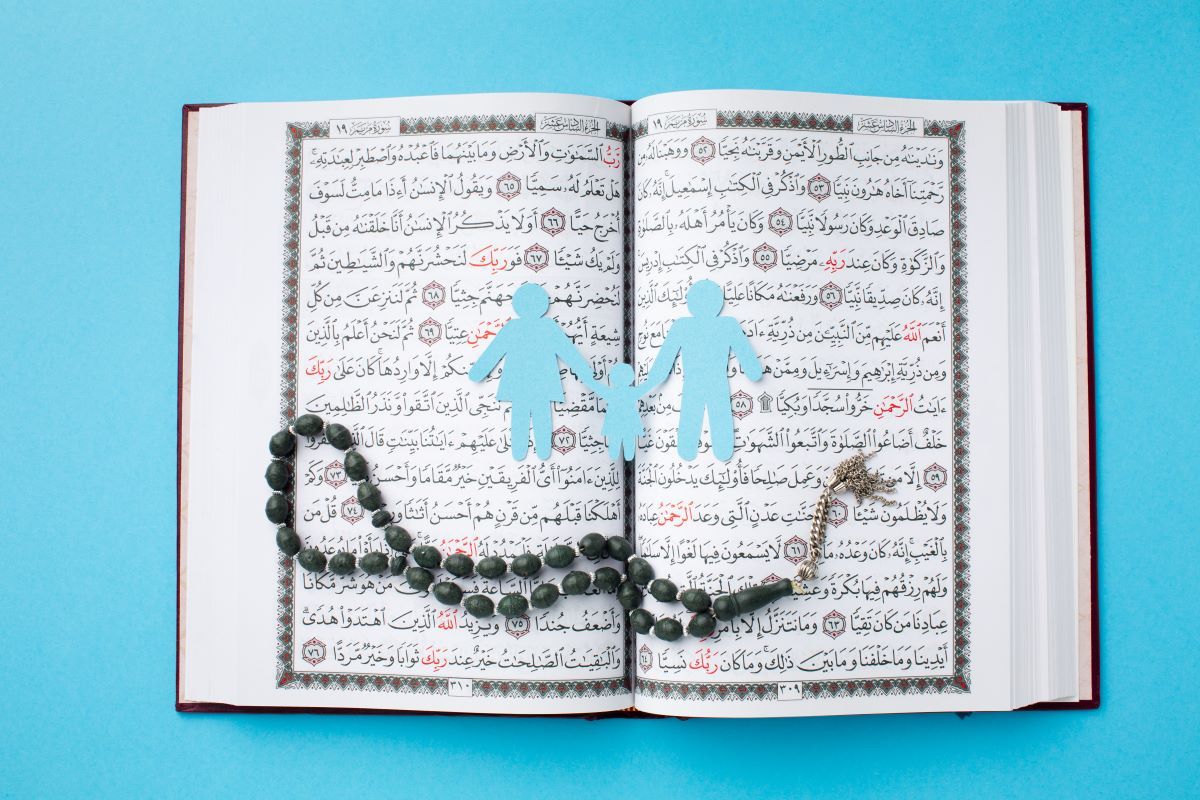 الجُزْءُ السَّادِسَ عَشَرَ سُورَةُ مَرْيَمَ ١٩
وَنَٰدَيْنَٰهُ مِن جَانِبِ ٱلطُّورِ ٱلْأَيْمَنِ وَقَرَّبْنَٰهُ نَجِيًّا ٥٢ وَوَهَبْنَا لَهُۥ مِن
رَّحْمَتِنَآ أَخَاهُ هَٰرُونَ نَبِيًّا ٥٣ وَٱذْكُرْ فِى ٱلْكِتَٰبِ إِسْمَٰعِيلَ ۚ إِنَّهُۥ كَانَ
صَادِقَ ٱلْوَعْدِ وَكَانَ رَسُولًا نَّبِيًّا ٥٤ وَكَانَ يَأْمُرُ أَهْلَهُۥ بِٱلصَّلَوٰةِ
وَٱلزَّكَوٰةِ وَكَانَ عِندَ رَبِّهِۦ مَرْضِيًّا ٥٥ وَٱذْكُرْ فِى ٱلْكِتَٰبِ إِدْرِيسَ ۚ
إِنَّهُۥ كَانَ صِدِّيقًا نَّبِيًّا ٥٦ وَرَفَعْنَٰهُ مَكَانًا عَلِيًّا أُو۟لَٰٓئِكَ ٱلَّذِينَ
أَنْعَمَ ٱللَّهُ عَلَيْهِم مِّنَ ٱلنَّبِيِّۦنَ مِن ذُرِّيَّةِ ءَادَمَ مَعَ نُوحٍ
وَمِن ذُرِّيَّةِ إِبْرَٰهِيمَ وَإِسْرَٰٓءِيلَ وَمِمَّنْ
ءَايَٰتُ ٱلرَّحْمَٰنِ خَرُّوا۟ سُجَّدًا وَبُكِيًّا ۩ ٥٨ مِنۢ بَعْدِهِمْ
خَلْفٌ أَضَاعُوا۟ ٱلصَّلَوٰةَ وَٱتَّبَعُوا۟ ٱلشَّهَوَٰتِ يَلْقَوْنَ غَيًّا
٥٩ إِلَّا مَن وَعَمِلَ صَٰلِحًا فَأُو۟لَٰٓئِكَ يَدْخُلُونَ ٱلْجَنَّةَ
وَلَا يُظْلَمُونَ شَيْـًٔا ٦٠ جَنَّٰتِ عَدْنٍ ٱلَّتِى وَعَدَ ٱلرَّحْمَٰنُ عِبَادَهُۥ
بِٱلْغَيْبِ ۚ إِنَّهُۥ كَانَ وَعْدُهُۥ ٦١ لَّا يَسْمَعُونَ فِيهَا لَغْوًا إِلَّا سَلَٰمًا
وَلَهُمْ رِزْقُهُمْ فِيهَا بُكْرَةً وَعَشِيًّا ٱلْجَنَّةُ
عِبَادِنَا مَن كَانَ تَقِيًّا ٦٣ وَمَا نَتَنَزَّلُ إِلَّا بِأَمْرِ
أَيْدِينَا وَمَا خَلْفَنَا وَمَا بَيْنَ ذَٰلِكَ ۚ وَمَا كَانَ رَبُّكَ نَسِيًّا ٦٤
٣٠٩
الجُزْءُ السَّادِسَ عَشَرَ سُورَةُ مَرْيَمَ ١٩
رَّبُّ ٱلسَّمَٰوَٰتِ وَٱلْأَرْضِ وَمَا بَيْنَهُمَا فَٱعْبُدْهُ وَٱصْطَبِرْ لِعِبَٰدَتِهِۦ ۚ
هَلْ تَعْلَمُ لَهُۥ سَمِيًّا ٦٥ وَيَقُولُ ٱلْإِنسَٰنُ أَءِذَا مَا مِتُّ لَسَوْفَ
أُخْرَجُ حَيًّا ٦٦ أَوَلَا يَذْكُرُ ٱلْإِنسَٰنُ أَنَّا خَلَقْنَٰهُ مِن قَبْلُ
وَلَمْ يَكُ شَيْـًٔا ٦٧ فَوَرَبِّكَ لَنَحْشُرَنَّهُمْ وَٱلشَّيَٰطِينَ ثُمَّ
لَنُحْضِرَنَّهُمْ جَهَنَّمَ جِثِيًّا ٦٨ ثُمَّ لَنَنزِعَنَّ مِن كُلِّ
شِيعَةٍ أَيُّهُمْ ٱلرَّحْمَٰنِ عِتِيًّا ٦٩ ثُمَّ لَنَحْنُ أَعْلَمُ بِٱلَّذِينَ
مِّنكُمْ إِلَّا وَارِدُهَا ۚ كَانَ عَلَىٰ رَبِّكَ
مَّقْضِيًّا نُنَجِّى ٱلَّذِينَ ٱتَّقَوا۟ وَّنَذَرُ ٱلظَّٰلِمِينَ
جِثِيًّا ٧٢ عَلَيْهِمْ ءَايَٰتُنَا بَيِّنَٰتٍ قَالَ ٱلَّذِينَ كَفَرُوا۟
لِلَّذِينَ ءَامَنُوٓا۟ أَىُّ ٱلْفَرِيقَيْنِ خَيْرٌ مَّقَامًا وَأَحْسَنُ ٧٣ وَكَمْ
أَهْلَكْنَا قَبْلَهُم مِّن قَرْنٍ هُمْ أَحْسَنُ أَثَٰثًا ٧٤ قُلْ مَن
كَانَ ٱلرَّحْمَٰنُ
ٱلسَّاعَةَ مَنْ هُوَ شَرٌّ مَّكَانًا
وَأَضْعَفُ جُندًا ٧٥ وَيَزِيدُ ٱللَّهُ ٱلَّذِينَ ٱهْتَدَوْا۟ هُدًى ۗ
وَٱلْبَٰقِيَٰتُ ٱلصَّٰلِحَٰتُ خَيْرٌ عِندَ رَبِّكَ ثَوَابًا وَخَيْرٌ مَّرَدًّا ٧٦
٣١٠